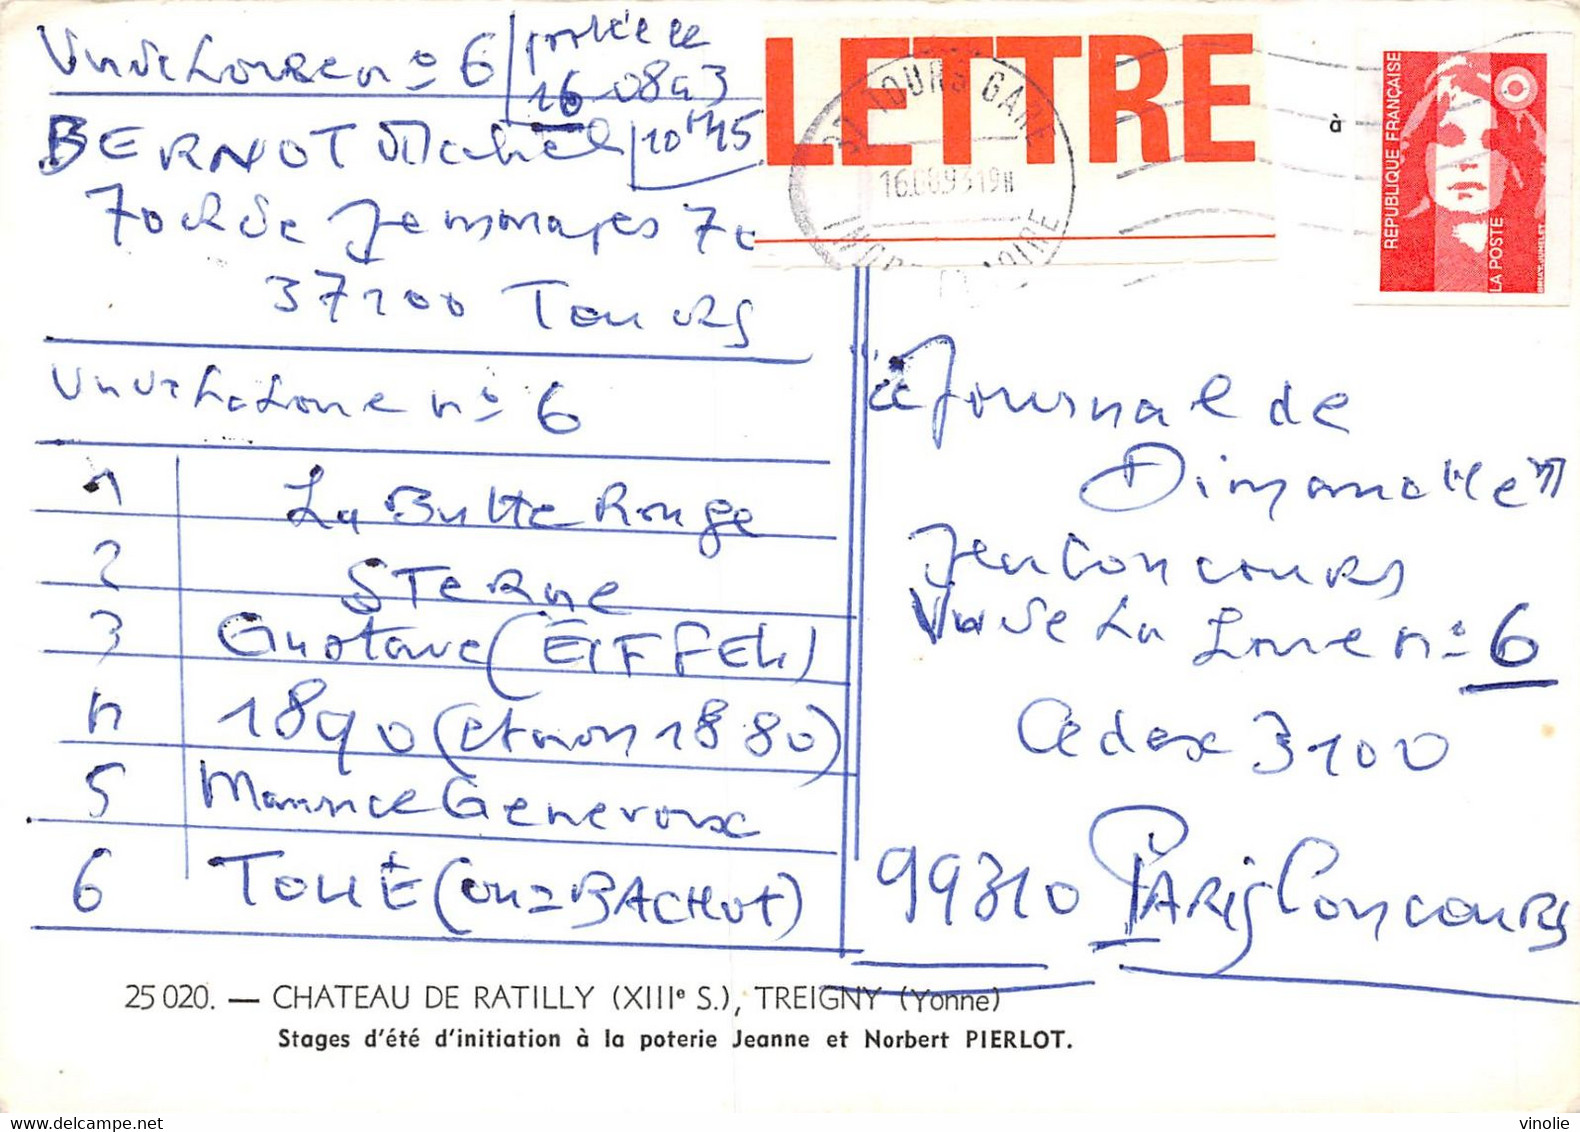 Vu de La Lune n° 6 | postée le
16 08 93
BERNOT Michel | 10h45
70 rue de Jemmapes 70
37100 Tours
Vu de La Lune n° 6
1 La Butte Rouge
2 STERNE
3 Gustave (EIFFEL)
4 1890 (et non 1880)
5 Maurice Genevoix
6 TOUÉ (ou = BACHOT)
LETTRE
à
37 TOURS GARE
16.08.93 19H
INDRE ET LOIRE
RÉPUBLIQUE FRANÇAISE
LA POSTE
BRIAT. JUMELET
"Journal de
Dimanche"
Jeu Concours
Vu de La Lune n° 6
Cedex 3100
99310 PARIS Concours
25 020. — CHATEAU DE RATILLY (XIIIe S.), TREIGNY (Yonne)
Stages d'été d'initiation à la poterie Jeanne et Norbert PIERLOT.
vinolie